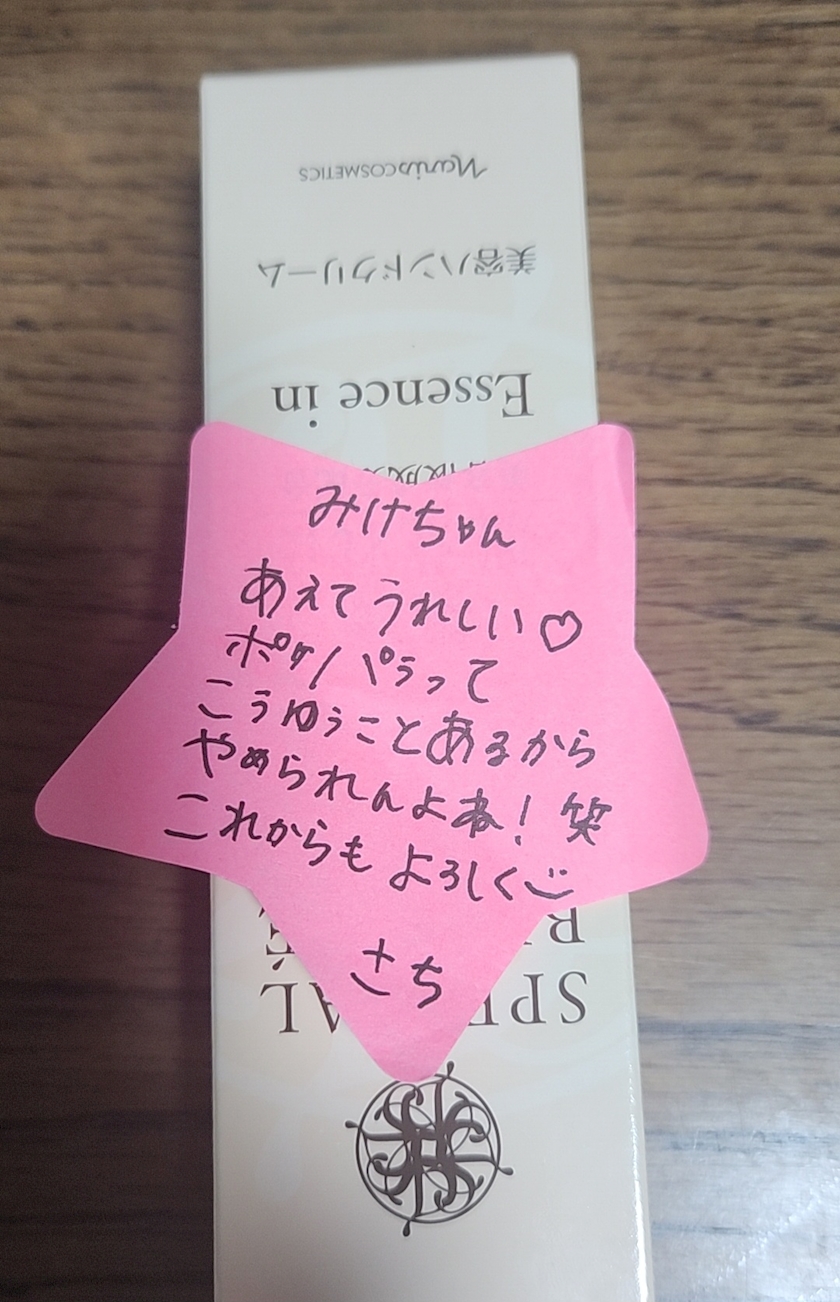 みけちゃん
あえてうれしい♡
ポケパラって
こうゆうことあるから
やめられんよね！笑
これからもよろしく
さち
Naris COSMETICS
美容ハンドクリーム
Essence in